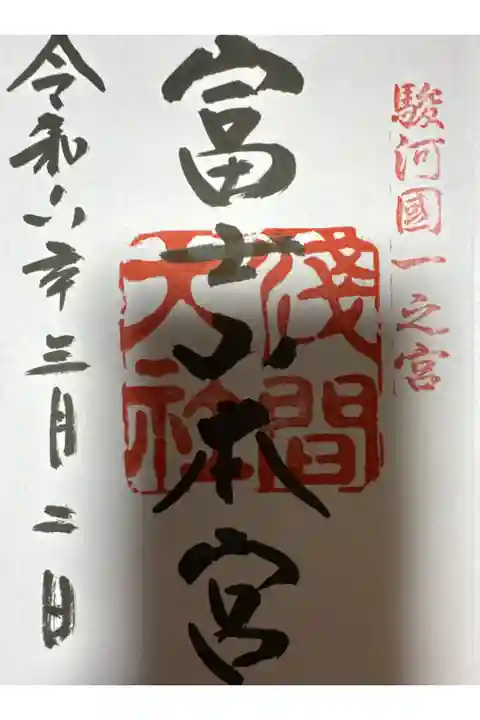 駿河國一之宮
富士山本宮
淺間
大社
令和六年三月二日